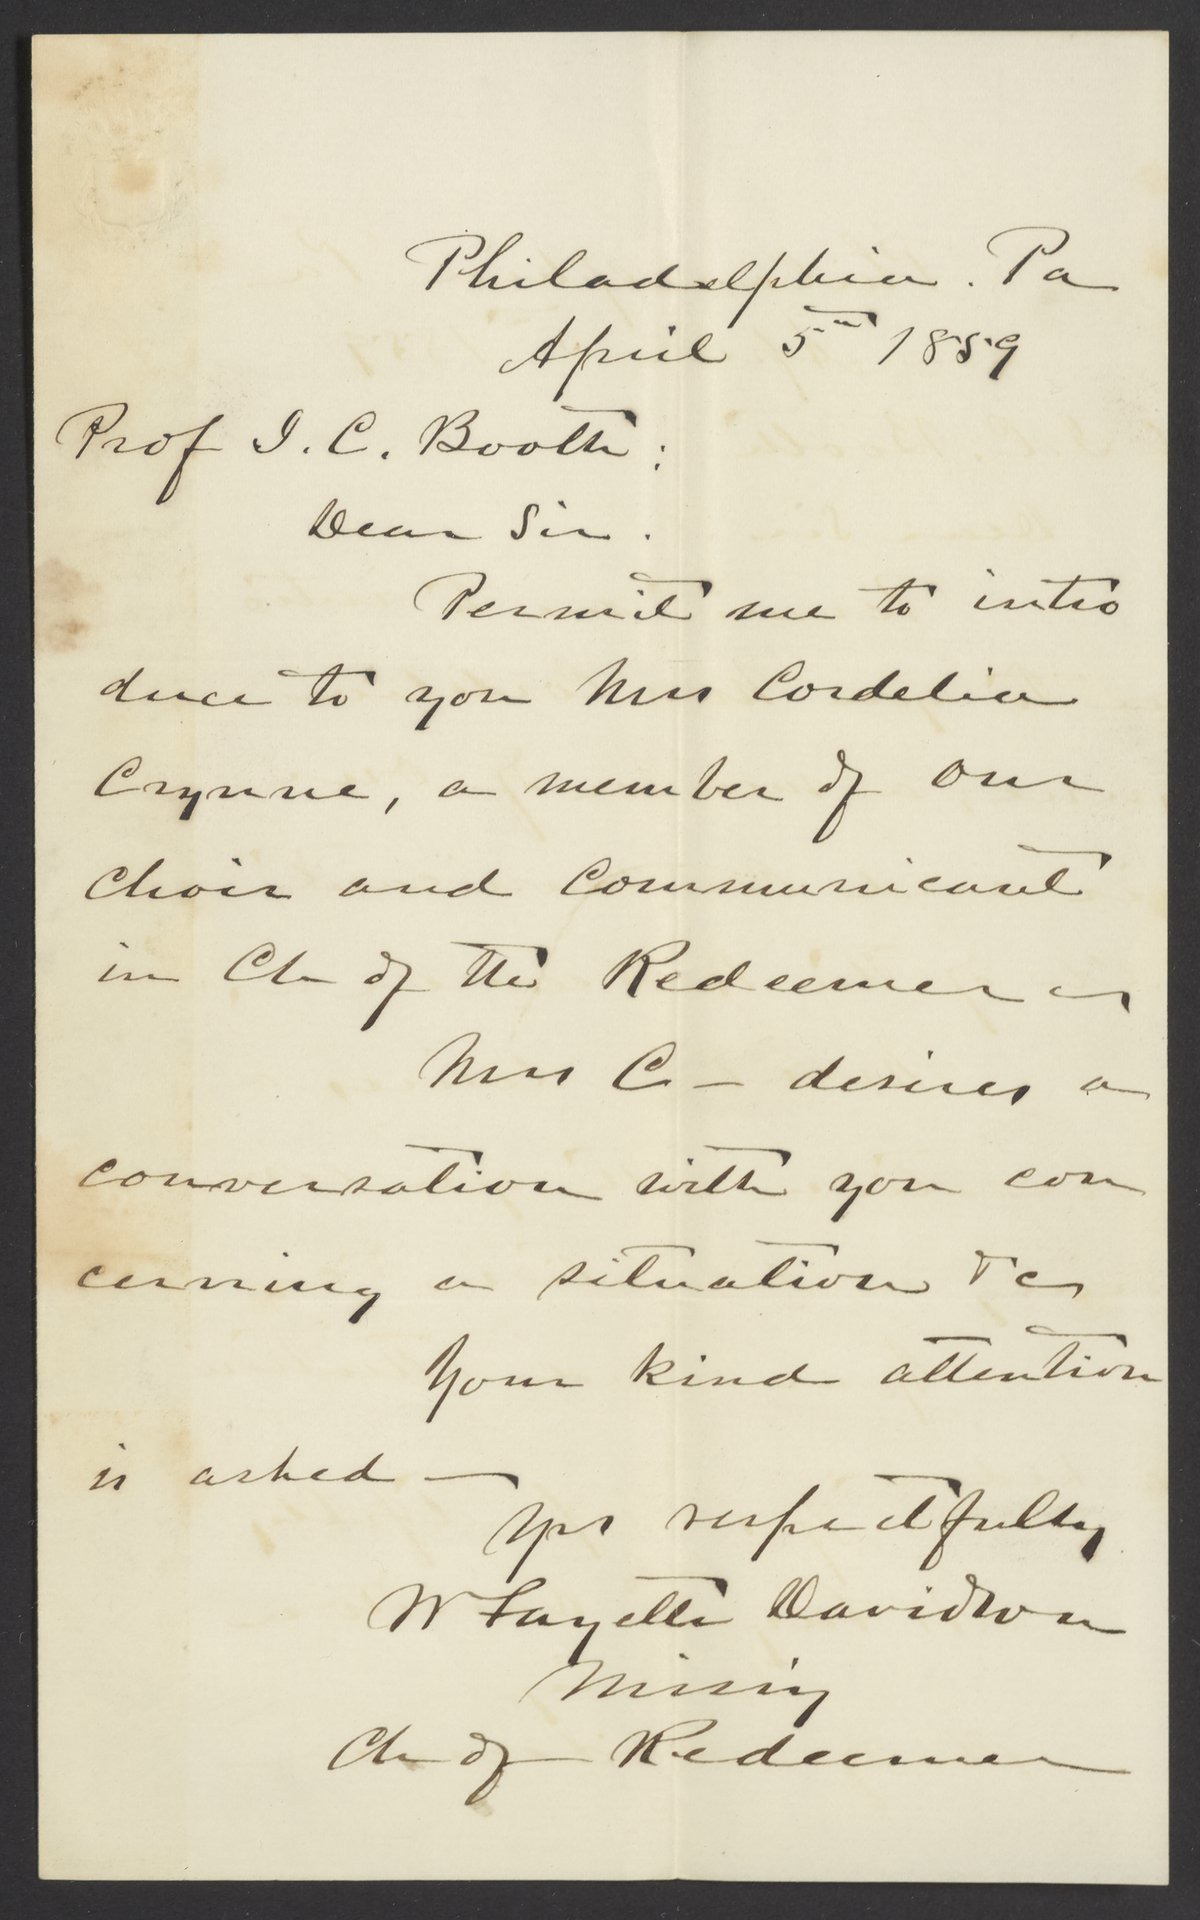 Philadelphia. Pa
April 5th 1859
Prof J. C. Booth:
Dear Sir.
Permit me to intro
duce to you Mrs Cordelia
Crynne, a member of our
Choir and Communicant
in Ch of the Redeemer
Mrs C - desires a
conversation with you con
cerning a situation &c
Your kind attention
is asked —
Yrs respectfully
W Fayette Davidson
Missiy
Ch of Redeemer